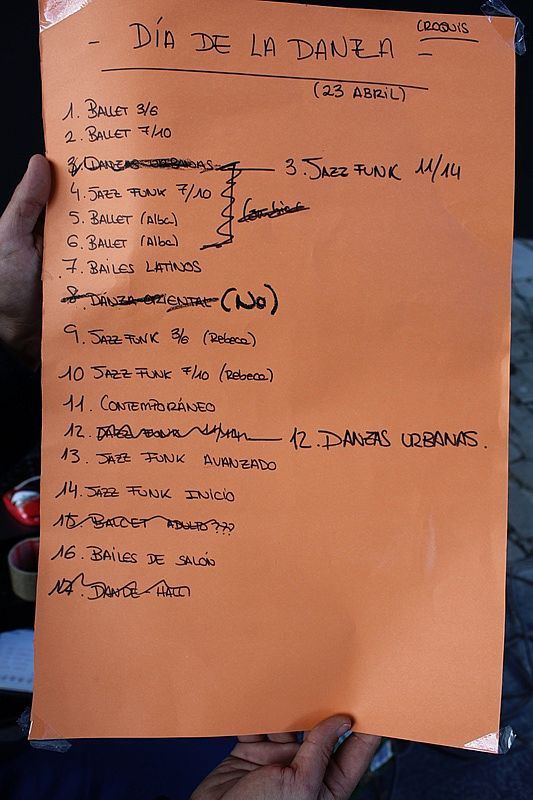 CROQUIS
- DÍA DE LA DANZA -
(23 ABRIL)
1. BALLET 3/6
2. BALLET 7/10
3. DANZAS URBANAS 3. JAZZ FUNK 11/14
4. JAZZ FUNK 7/10
5. BALLET (Alba)
6. BALLET (Alba)
7. BAILES LATINOS
8. DANZA ORIENTAL (NO)
9. JAZZ FUNK 3/6 (Rebeca)
10 JAZZ FUNK 7/10 (Rebeca)
11. CONTEMPORÁNEO
12. JAZZ FUNK 11/14 12. DANZAS URBANAS.
13. JAZZ FUNK AVANZADO
14. JAZZ FUNK INICIO
15. BALLET ADULTO ???
16. BAILES DE SALÓN
17. DANCE-HALL